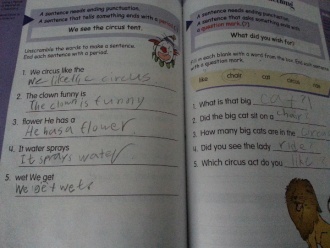 A sentence needs ending punctuation.
A sentence that tells something ends with a period
We see the circus tent.
Unscramble the words to make a sentence.
End each sentence with a period.
1. We circus like the
We like the circus
2. The clown funny is
The clown is funny
3. flower He has a
He has a flower
4. It water sprays
It sprays water
5. wet We get
We get wet
A sentence needs ending punctuation.
A sentence that asks something ends with
a question mark (?)
What did you wish for?
in each blank with a word from the
with a question mark.
like chair cat circus
1. What is that big cat?
2. Did the big cat sit on a chair
3. How many big cats are in the circus
4. Did you see the lady ride
5. Which circus act do you like